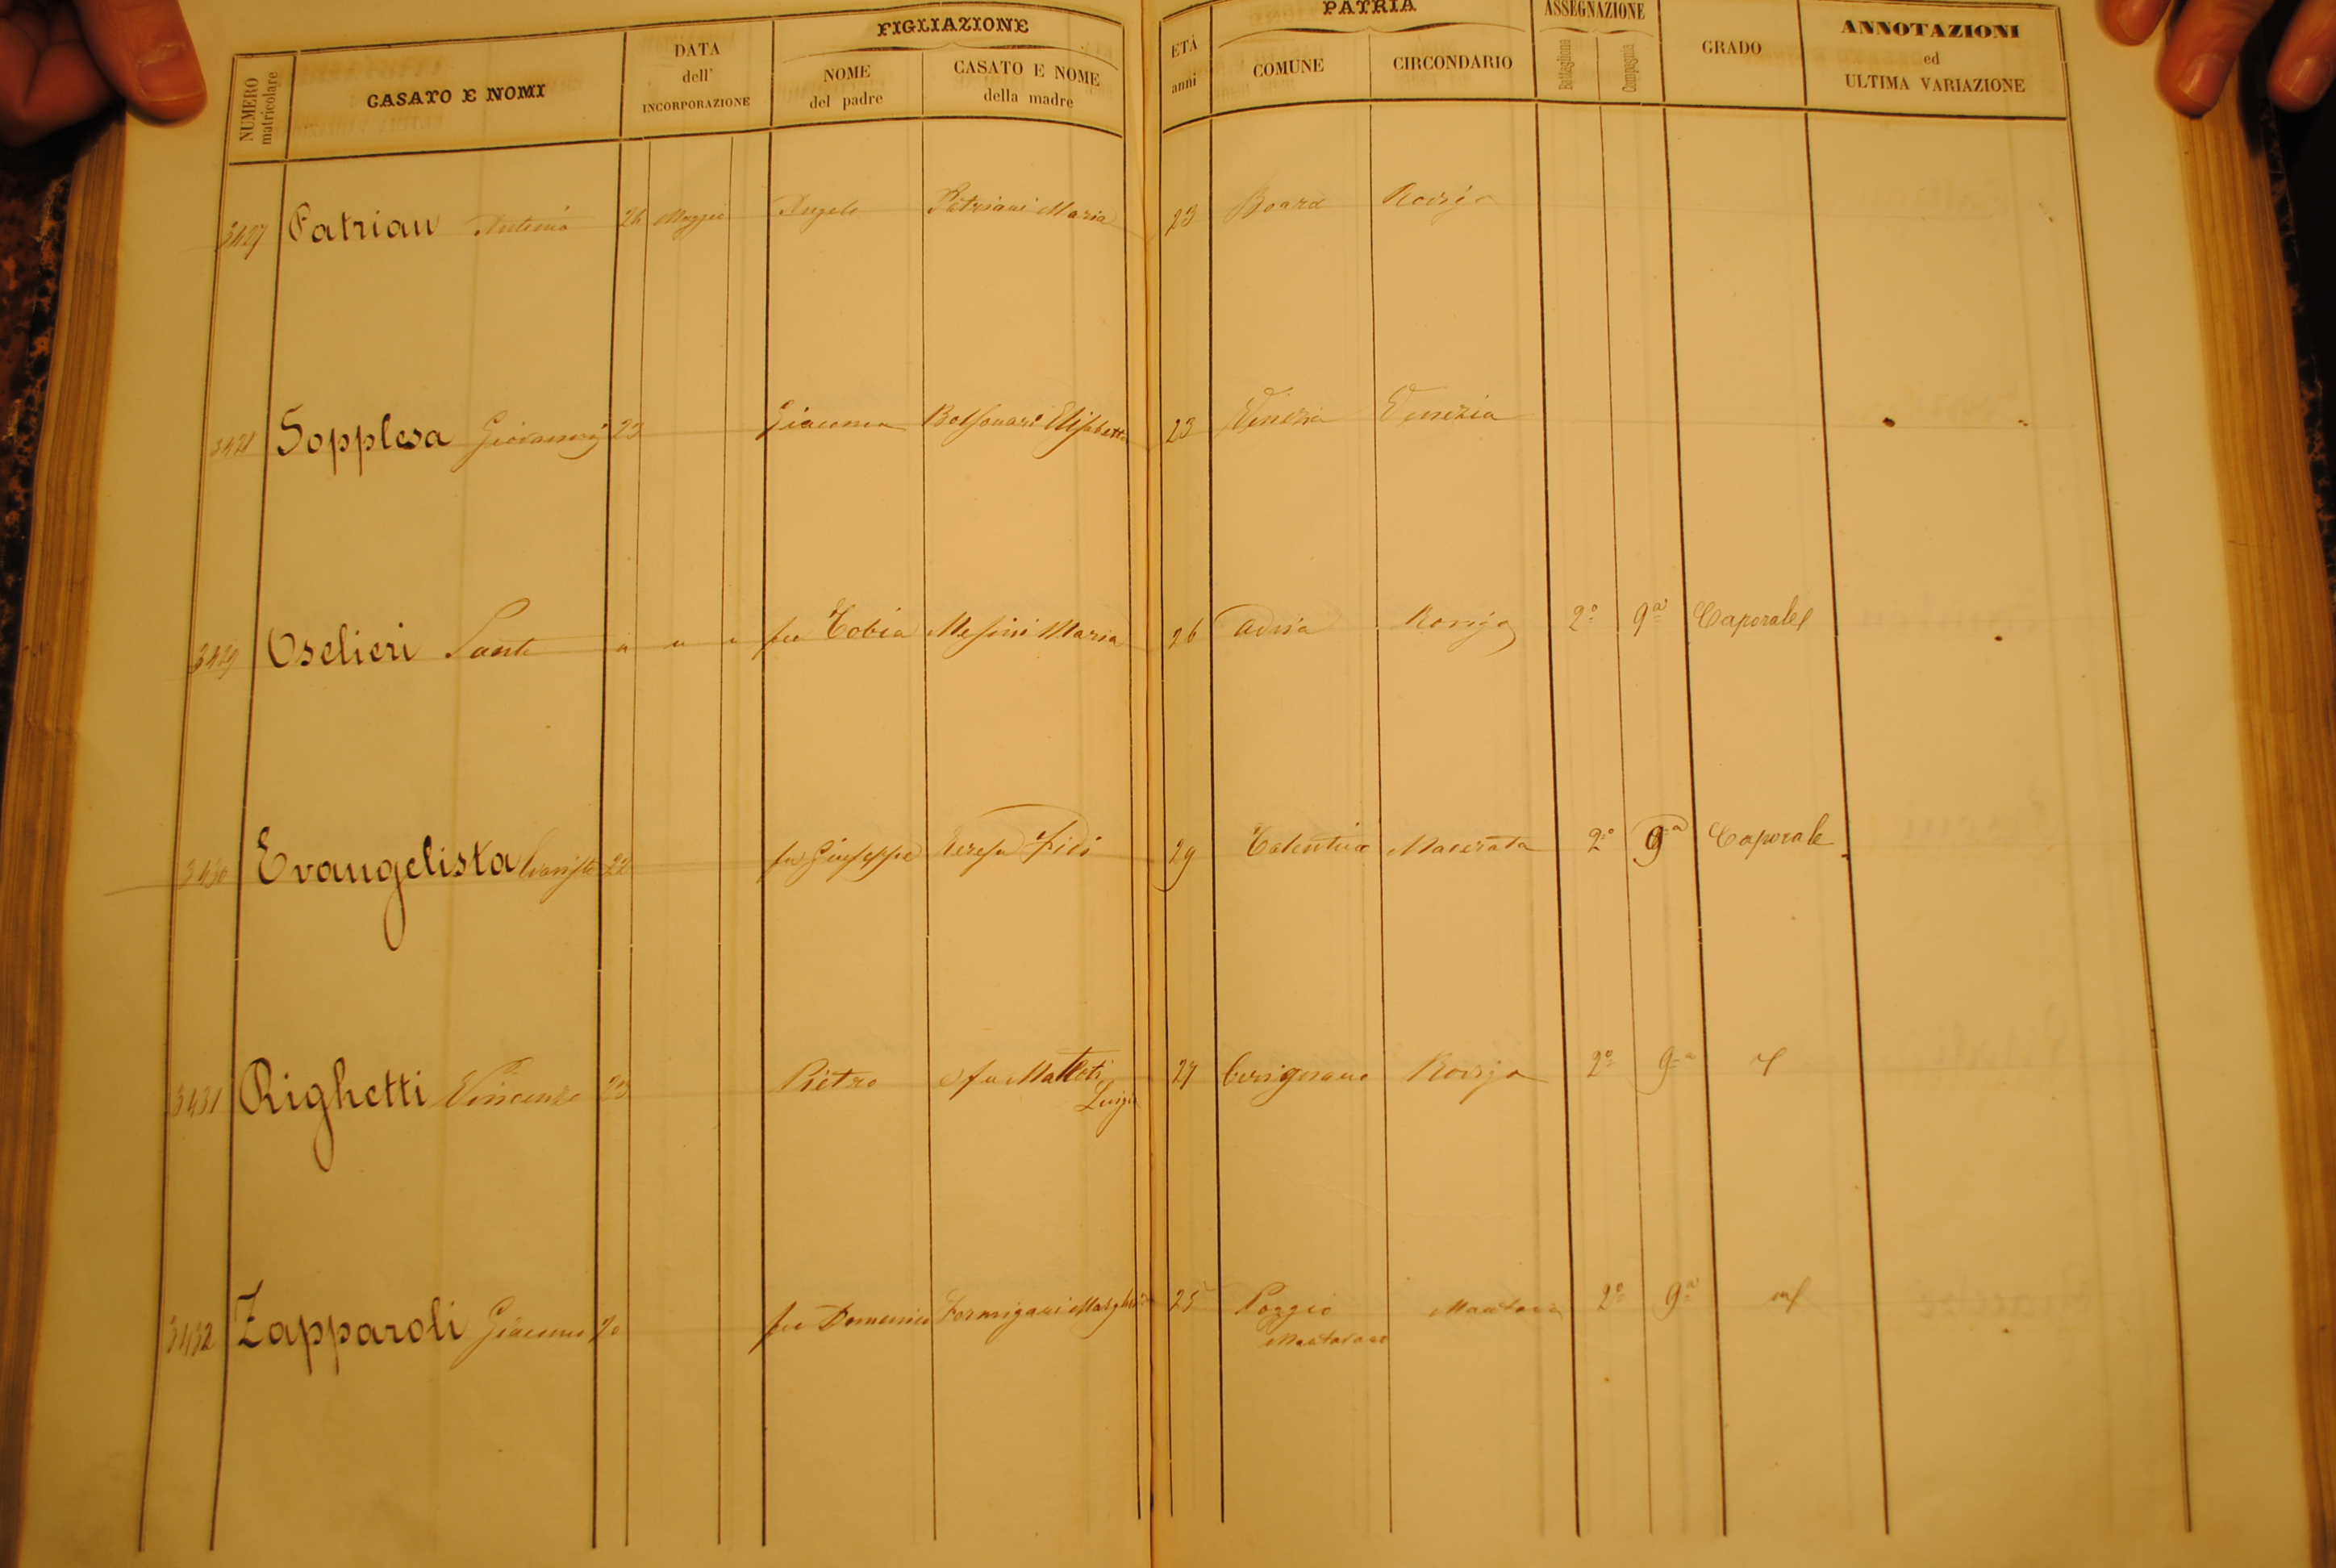 NUMERO matricolare CASATO E NOMI DATA dell' INCORPORAZIONE FIGLIAZIONE NOME del padre CASATO E NOME della madre ETÀ anni PATRIA COMUNE CIRCONDARIO ASSEGNAZIONE Battaglione Compagnia GRADO ANNOTAZIONI ed ULTIMA VARIAZIONE
3427 Patrian Antonio 26 Maggio Angelo Patriani Maria 23 Boara Rovigo
3428 Sopplesa Giovanni 23 Giacomo Elisabetta 23 Venezia Venezia
3429 Oselieri Sante fu Tobia Messini Maria 26 Adria Rovigo 2º 9ª Caporale
3430 Evangelista Evaristo 22 fu Giuseppe Teresa Fidi 29 Tolentino Macerata 2º 9ª Caporale
3431 Righetti Vincenzo 23 Pietro fu Luigia 27 Rovigo 2º 9ª
3432 Zapparoli Giacomo fu Domenico Formigani 25 Poggio Mantovano Mantova 2º 9ª